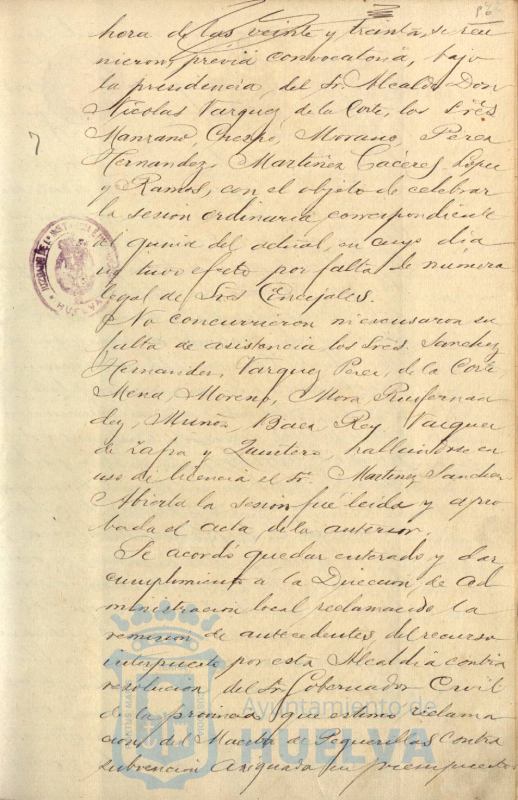 hora de las veinte y treinta, se reu
nieron, previa convocatoria, bajo
la presidencia, del Sr. Alcalde Don
Nicolas Vazquez de la Corte, los Sres
Manzano, Crespo, Morano, Perez
Hernandez, Martinez Caceres, Lopez
y Ramos, con el objeto de celebrar
la sesion ordinaria correspondiente
al quince del actual, en cuyo dia
no tuvo efecto por falta de numero
legal de Sres Concejales.
No concurrieron ni excusaron su
falta de asistencia los Sres. Sanchez
Hernandez, Vazquez Perez, de la Corte,
Mena, Moreno, Mora, Ruifernan
dez, Muñoz, Baez, Rey, Vazquez
de Zafra y Quintero, hallandose en
uso de licencia el Sr. Martinez Sanchez
Abierta la sesion fué leida y apro
bada el acta de la anterior.
Se acordó quedar enterado y dar
cumplimiento a la Direccion de ad
ministracion local reclamando la
remision de antecedentes del recurso
interpuesto por esta Alcaldia contra
resolucion del Sr. Gobernador Civil
de la provincia que estimó reclama
cion del Maestro de Peguerillas contra
subvencion asignada en presupuesto
Ayuntamiento de
HUELVA